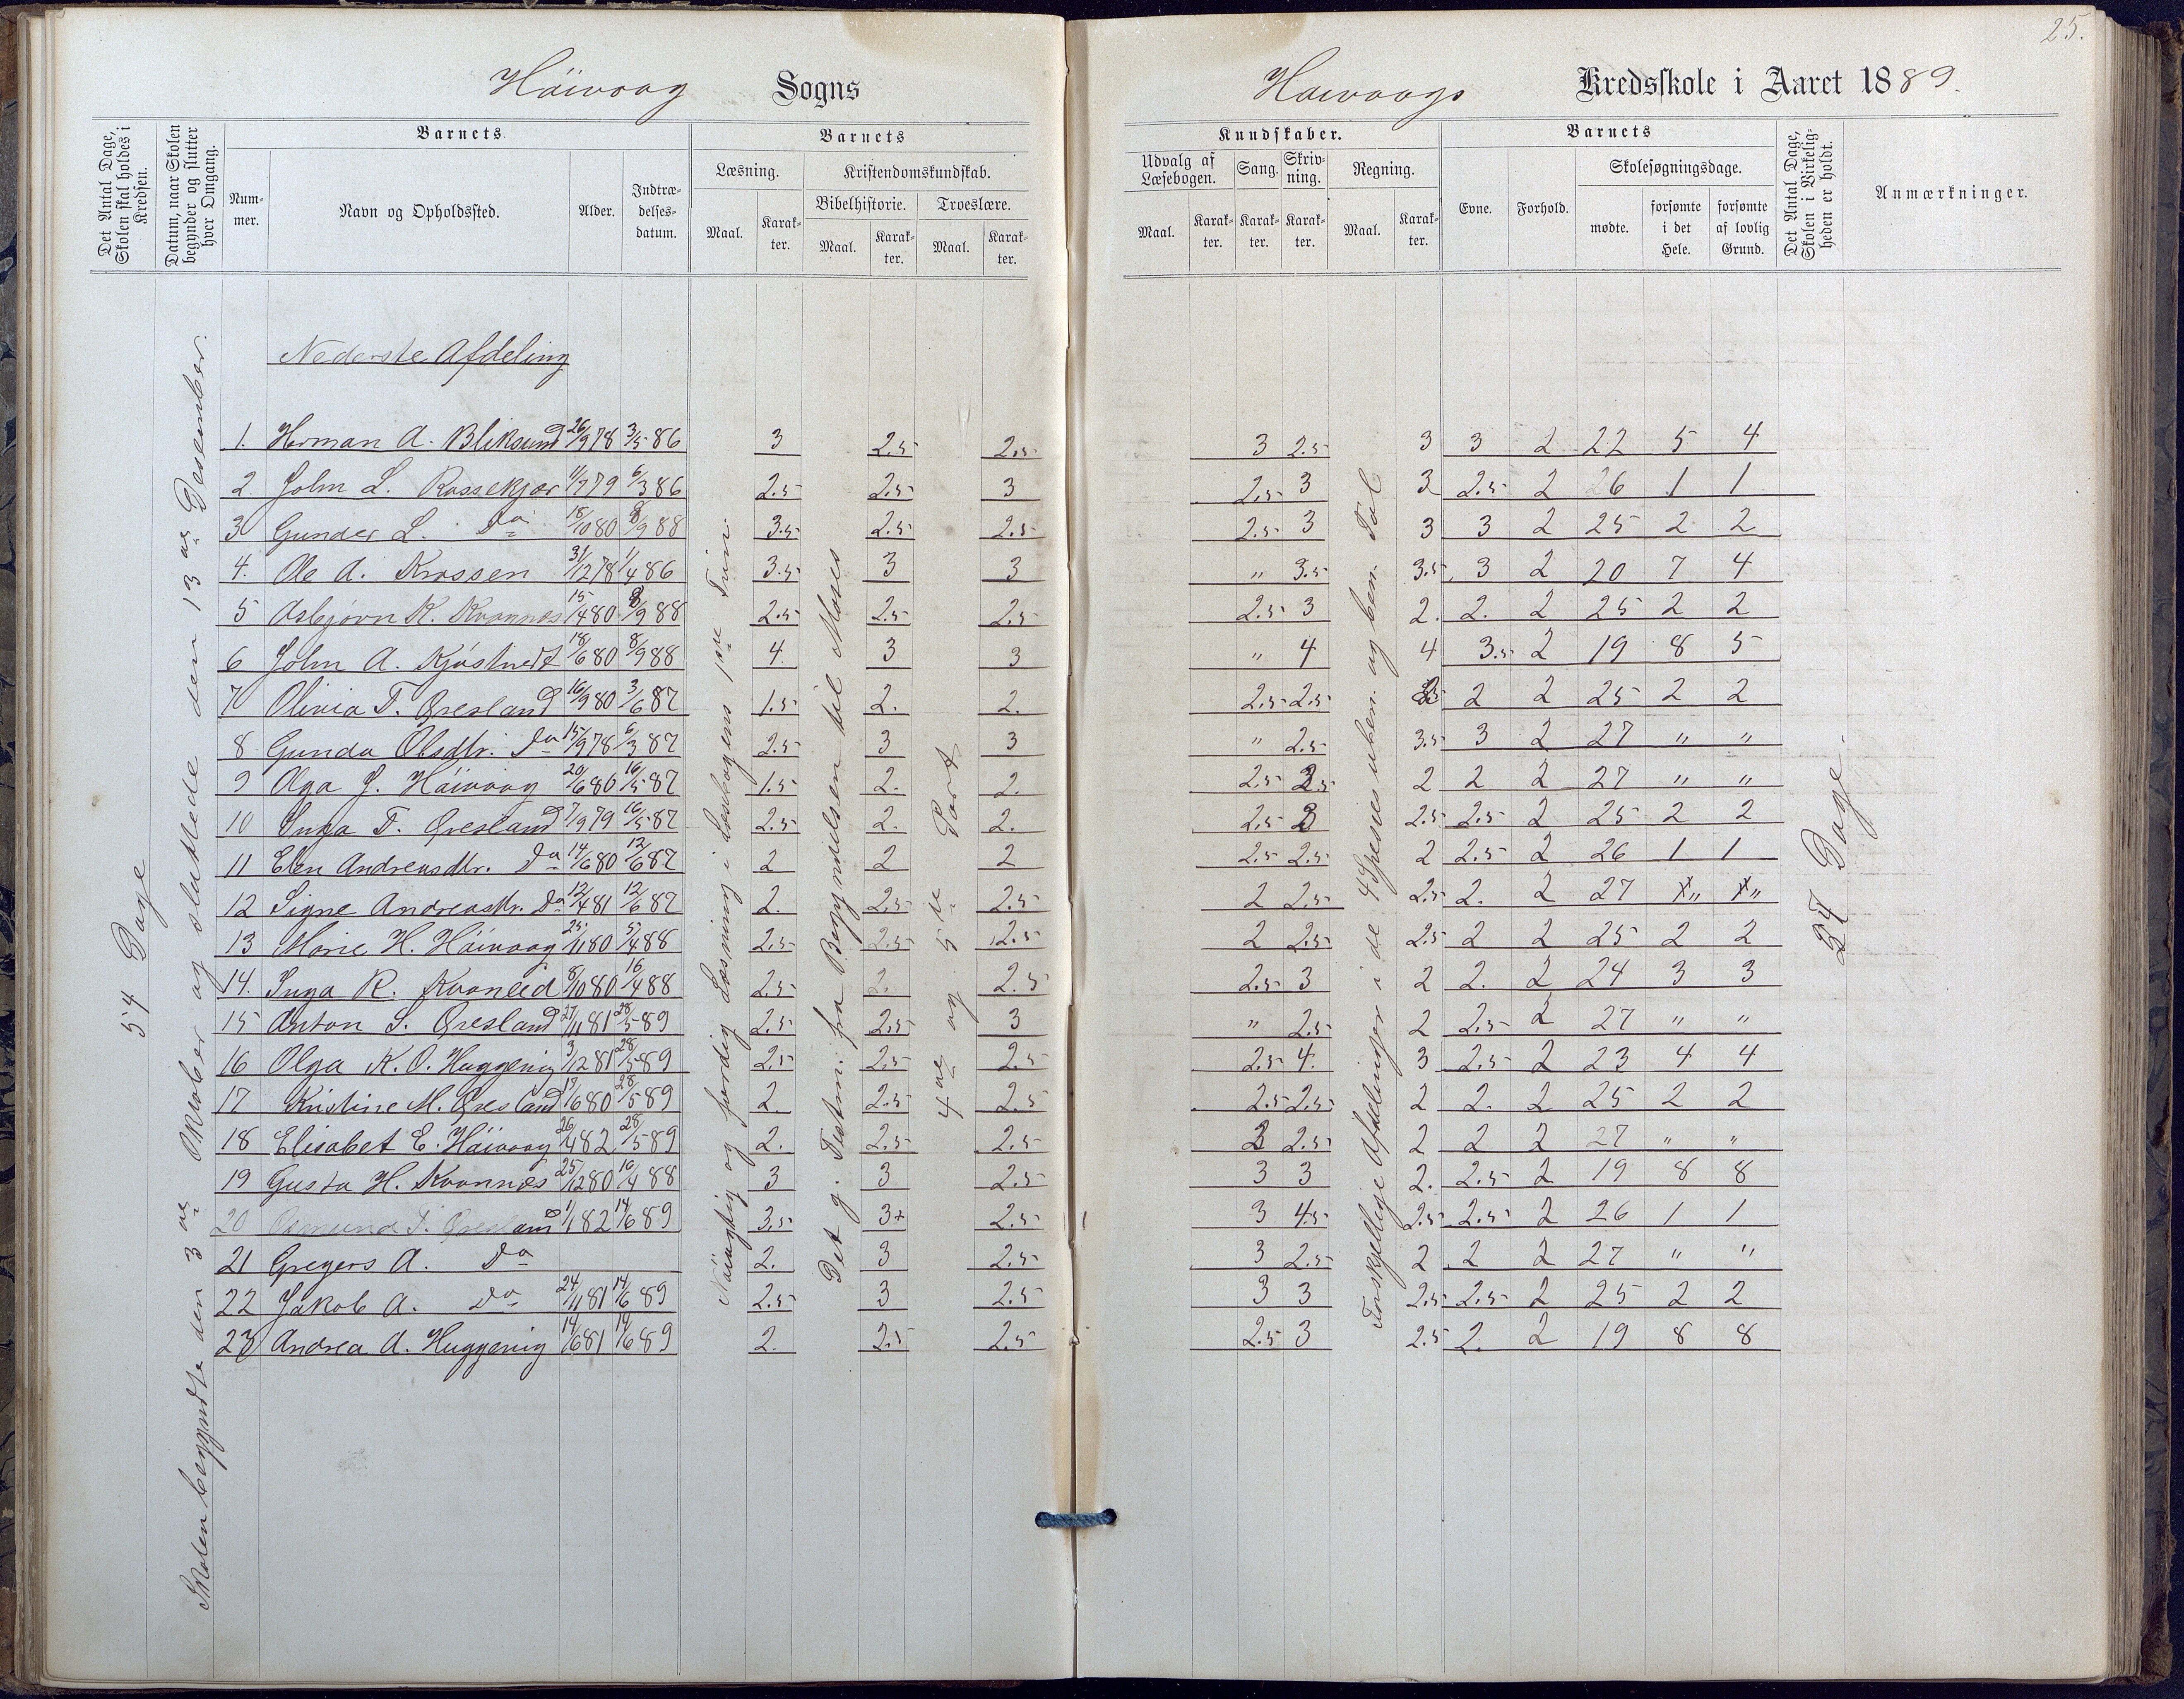 25.
Höivaag Sogns
Høivaags Kredsskole i Aaret 1889.
Det Antal Dage, Skolen skal holdes i Kredsen.
Datum, naar Skolen begynder og slutter hver Omgang.
Barnets
Nummer.
Navn og Opholdssted.
Alder.
Indtrædelsesdatum.
Barnets
Læsning.
Maal.
Karakter.
Kristendomskundskab.
Bibelhistorie.
Maal.
Karakter.
Troeslære.
Maal.
Karakter.
Kundskaber.
Udvalg af Læsebogen.
Maal.
Karakter.
Sang.
Karakter.
Skrivning.
Karakter.
Regning.
Maal.
Karakter.
Barnets
Evne.
Forhold.
Skolesøgningsdage.
mødte.
forsømte i det Hele.
forsømte af lovlig Grund.
Det Antal Dage, Skolen i Virkeligheden er holdt.
Anmærkninger.
54 Dage
Skolen begyndte den 3die Oktober og sluttede den 13de Desember.
Nøiagtig og færdig Læsning i Læsebogens 1ste Trin
Det g. Testm. fra Begyndelsen til Moses
4de og 5te Part
Forskjellige Afdelinger i de 4 Spesies uben. og ben. Tal
27 Dage.
Nederste Afdeling
1. Herman A. Bliksund 26/9 78 3/5 86 3 2.5 2.5 3 2.5 3 3 2 22 5 4
2. John L. Rossekjær 11/7 79 6/3 86 2.5 2.5 3 2.5 3 3 2.5 2 26 1 1
3 Gunder L. Do 18/10 80 8/9 88 3.5 2.5 2.5 2.5 3 3 3 2 25 2 2
4. Ole A. Krossen 31/12 78 1/4 86 3.5 3 3 " 3.5 3.5 3 2 20 7 4
5 Asbjørn K. Kvannes 15/4 80 8/9 88 2.5 2.5 2.5 2.5 3 2. 2. 2 25 2 2
6 John A. Kjøstvedt 18/6 80 8/9 88 4. 3 3 " 4 4 3.5 2 19 8 5
7 Olivia T. Øresland 16/9 80 3/6 87 1.5 2. 2. 2.5 2.5 2.5 2 2 25 2 2
8 Gunda Olsdtr. Do 15/9 78 6/3 87 2.5 3 3 " 2.5 3.5 3 2 27 " "
9 Olga J. Höivaag 20/6 80 16/5 87 1.5 2. 2. 2.5 2.5 2 2 2 27 " "
10 Inga T. Øresland 7/9 79 16/5 87 2.5 2. 2. 2.5 3 2.5 2.5 2 25 2 2
11 Elen Andreasdtr. Do 14/6 80 12/6 87 2 2 2 2.5 2.5 2 2.5 2 26 1 1
12 Signe Andreasdtr. Do 12/4 81 12/6 87 2. 2.5 2.5 2 2.5 2.5 2. 2 27 " "
13 Marie H. Höivaag 25/11 80 5/4 88 2.5 2.5 2.5 2 2.5 2.5 2 2 25 2 2
14. Inga R. Kvanleid 8/10 80 16/4 88 2.5 2. 2.5 2.5 3 2 2. 2 24 3 3
15 Anton S. Øresland 27/11 81 28/5 89 2.5 2.5 3 " 2.5 2 2.5 2 27 " "
16 Olga K. O. Huggenig 3/12 81 28/5 89 2.5 2.5 2.5 2.5 4. 3 2.5 2 23 4 4
17 Kristine M. Øresland 19/6 80 28/5 89 2. 2.5 2.5 2.5 2.5 2 2. 2 25 2 2
18 Elisabet E. Höivaag 26/4 82 28/5 89 2. 2.5 2.5 2 2.5 2 2 2 27 " "
19 Gusta H. Kvannes 25/12 80 10/4 88 3 3 2.5 3 3 2. 2.5 2 19 8 8
20 Osmund T. Øresland 1/1 82 14/6 89 3.5 3+ 2.5 3 4.5 2.5 2.5 2 26 1 1
21 Gregers A. Do 2. 3 2.5 3 2.5 2 2 2 27 " "
22 Jakob A. Do 24/11 81 14/6 89 2.5 3 2.5 3 3 2.5 2.5 2 25 2 2
23 Andrea A. Huggenig 14/6 81 14/6 89 2. 2.5 2.5 2.5 3 2.5 2. 2 19 8 8